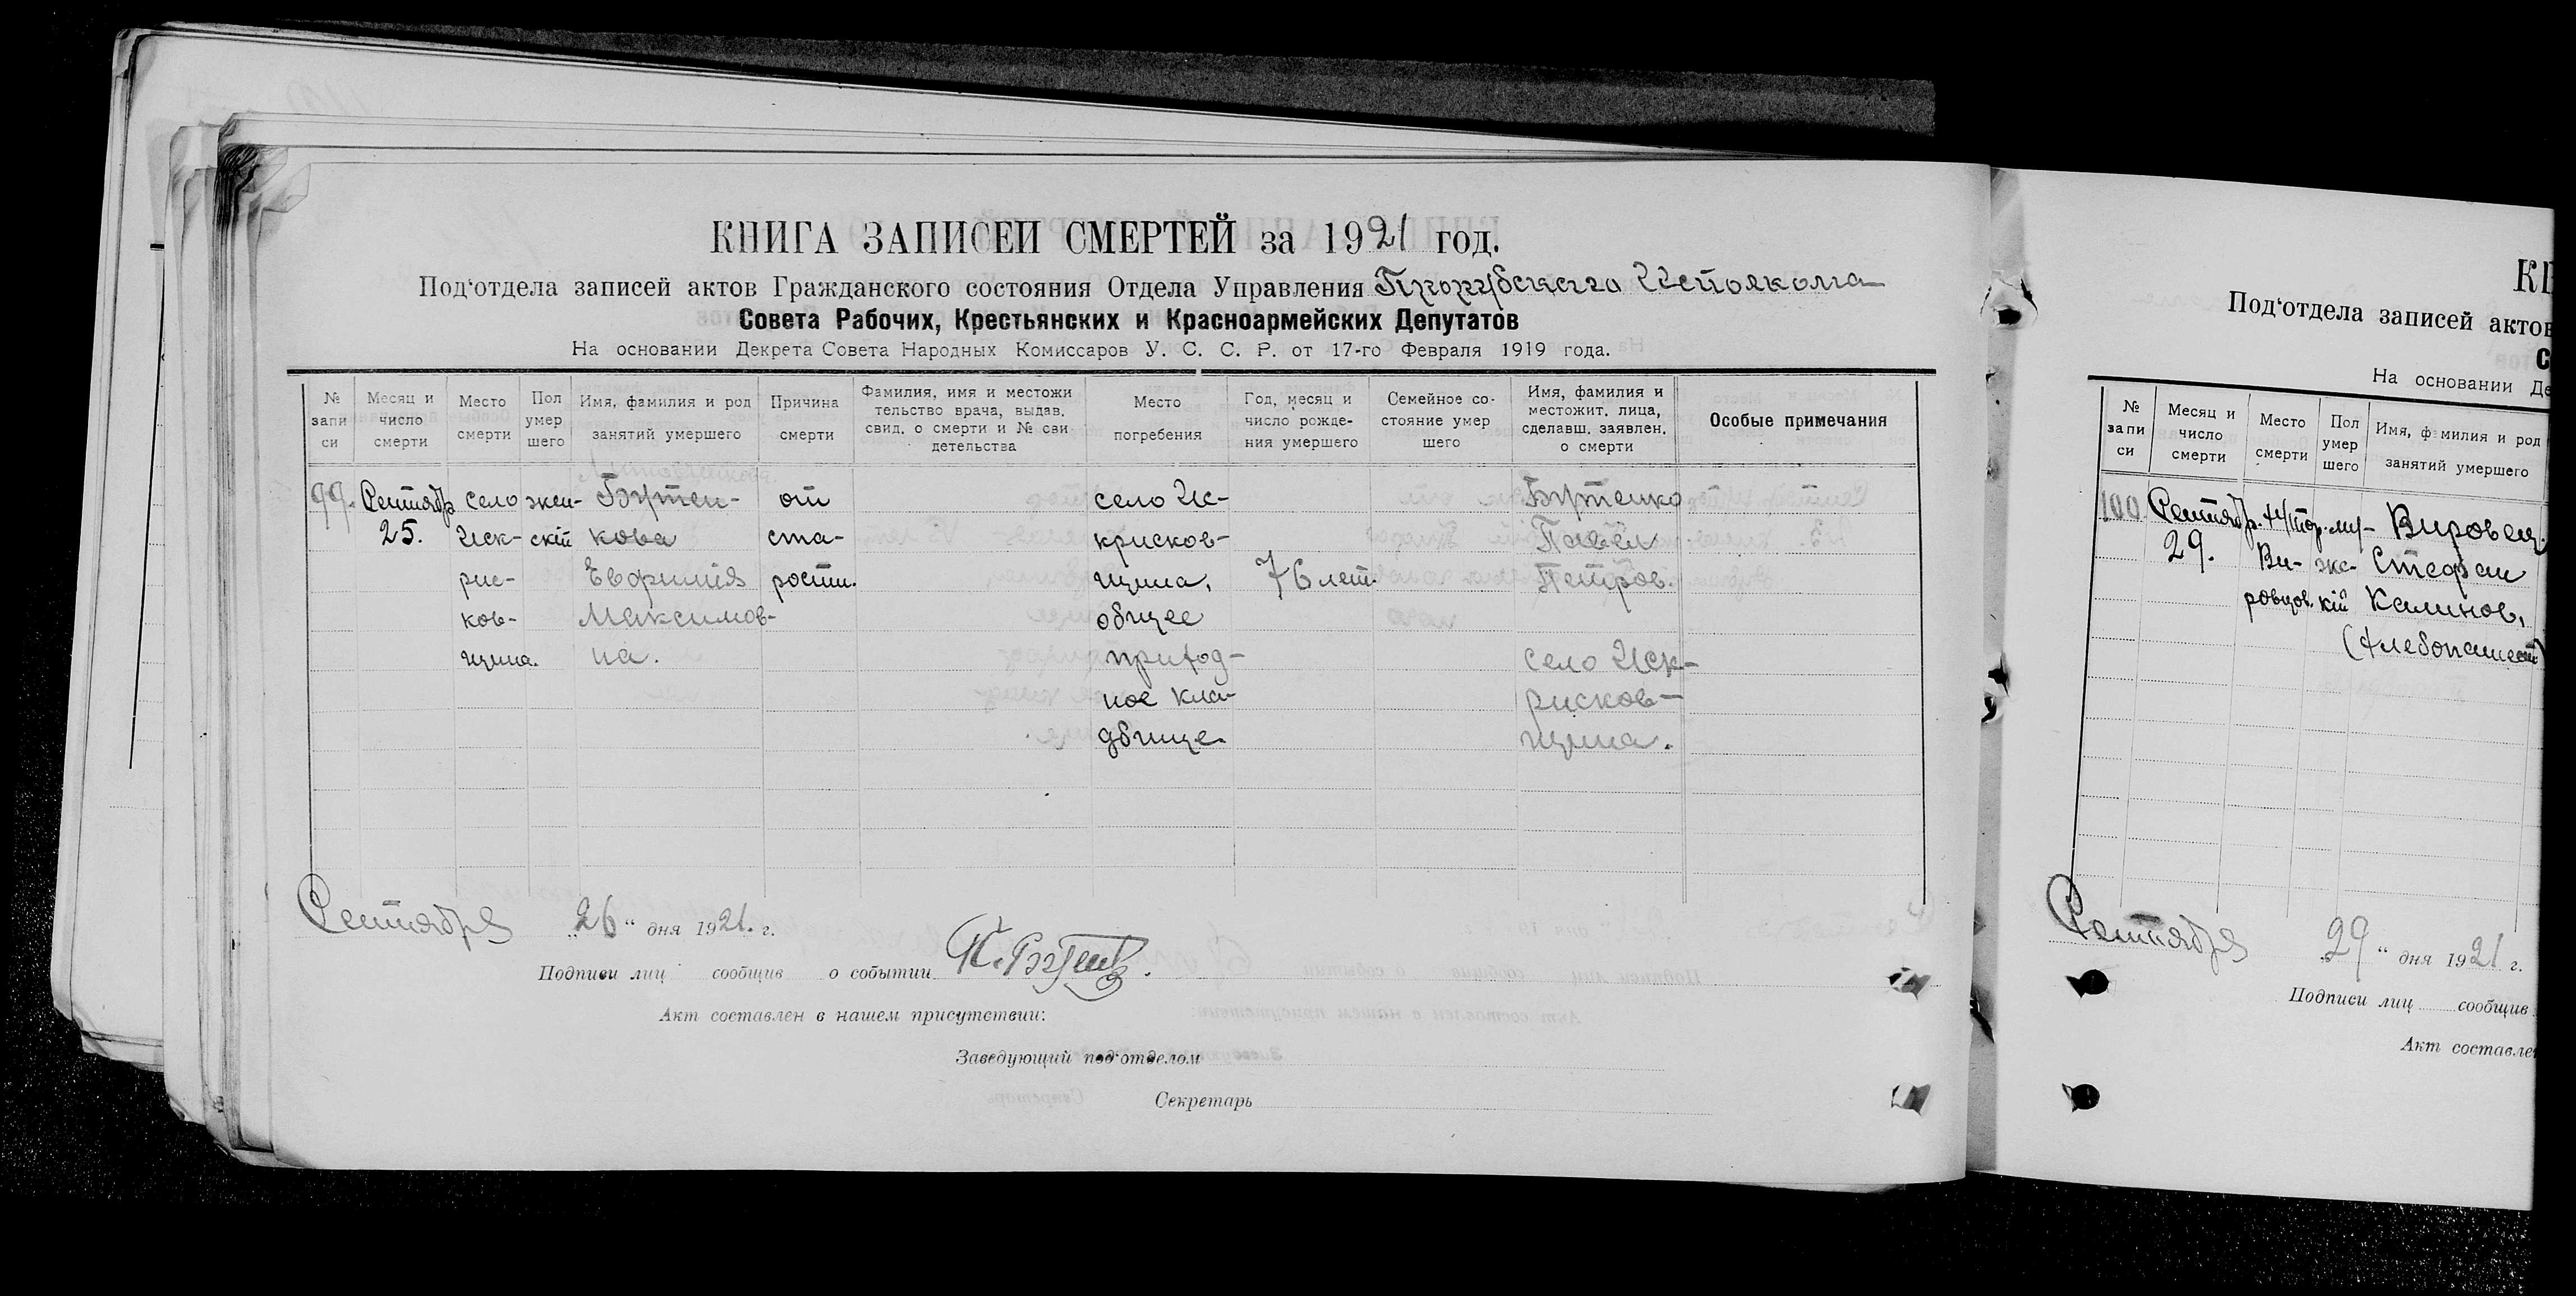 КНИГА ЗАПИСЕЙ СМЕРТЕЙ за 1921 год.
Под‘отдела записей актов Гражданского состояния Отдела Управления
Совета Рабочих, Крестьянских и Красноармейских Депутатов
На основании Декрета Совета Народных Комиссаров У. С. С. Р. от 17-го Февраля 1919 года.
№ запи си
Месяц и число смерти
Место смерти
Пол умер шего
Имя, фамилия и род занятий умершего
Причина смерти
Фамилия, имя и местожи тельство врача, выдав. свид. о смерти и № сви детельства
Место погребения
Год, месяц и число рожде- ния умершего
Семейное со- стояние умер шего
Имя, фамилия и местожит. лица, сделавш. заявлен. о смерти
Особые примечания
99. Сентябр село жен- Бутен- от село Ис- Бутенко
25. Иск- скій кова ста- крисков- Павел
рис- Евфимія рости. щина, 76 лет. Петров.
ков- Максимов- общее
щина. на. приход- село Иск-
ное кла- рисков-
дбище. щина.
Сентября „26“ дня 1921. г.
Подписи лиц сообщив о событии
Акт составлен в нашем присутствии:
Заведующий под‘отделом
Секретарь
КН
Под‘отдела записей актов
С
На основании Де
№ запи си
Месяц и число смерти
Место смерти
Пол умер шего
Имя, фамилия и род занятий умершего
100. Сентябр. хутор. му- Вировец
29. Ви- жс- Стефан
ровцов. кій Калинов.
(хлебопашест)
Сентября 29“ дня 1921 г.
Подписи лиц сообщив
Акт составлен